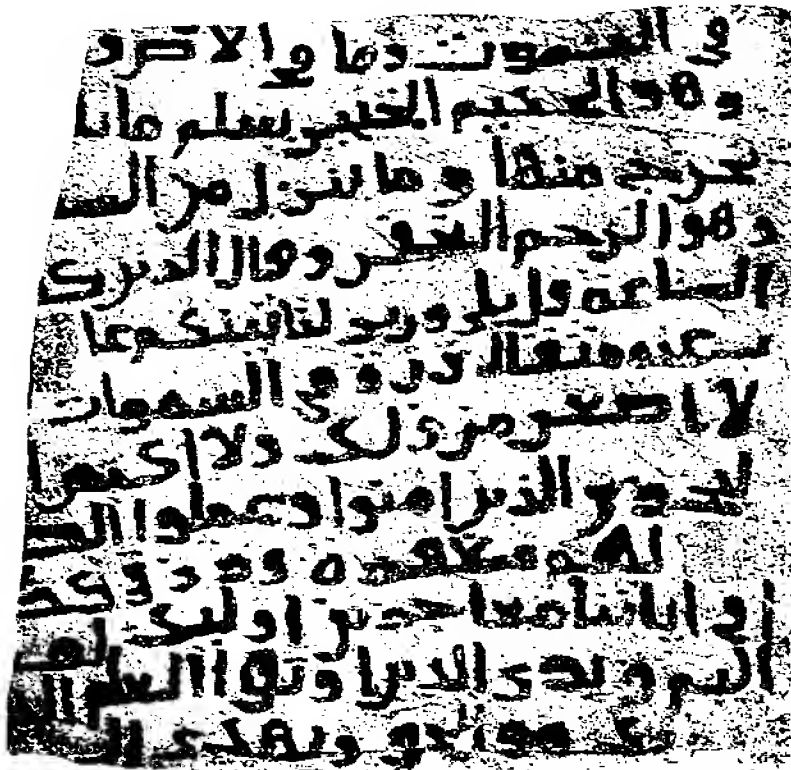 في السموت وما في الارض و
وهو الحكيم الخبير يعلم ما يلج
يخرج منها وما ينزل من السما
وهو الرحيم الغفور وقال الذين ك
الساعة قل بلى وربي لتاتينكم عا
يعزب عنه مثقال ذرة في السموات
لا اصغر من ذلك ولا اكبر ا
ليجزي الذين امنوا وعملوا الص
لهم مغفرة ورزق ك
في ايتنا معجزين اوليك لهم
اليم ويرى الذين اوتوا العلم ا
هو الحق ويهدي ا